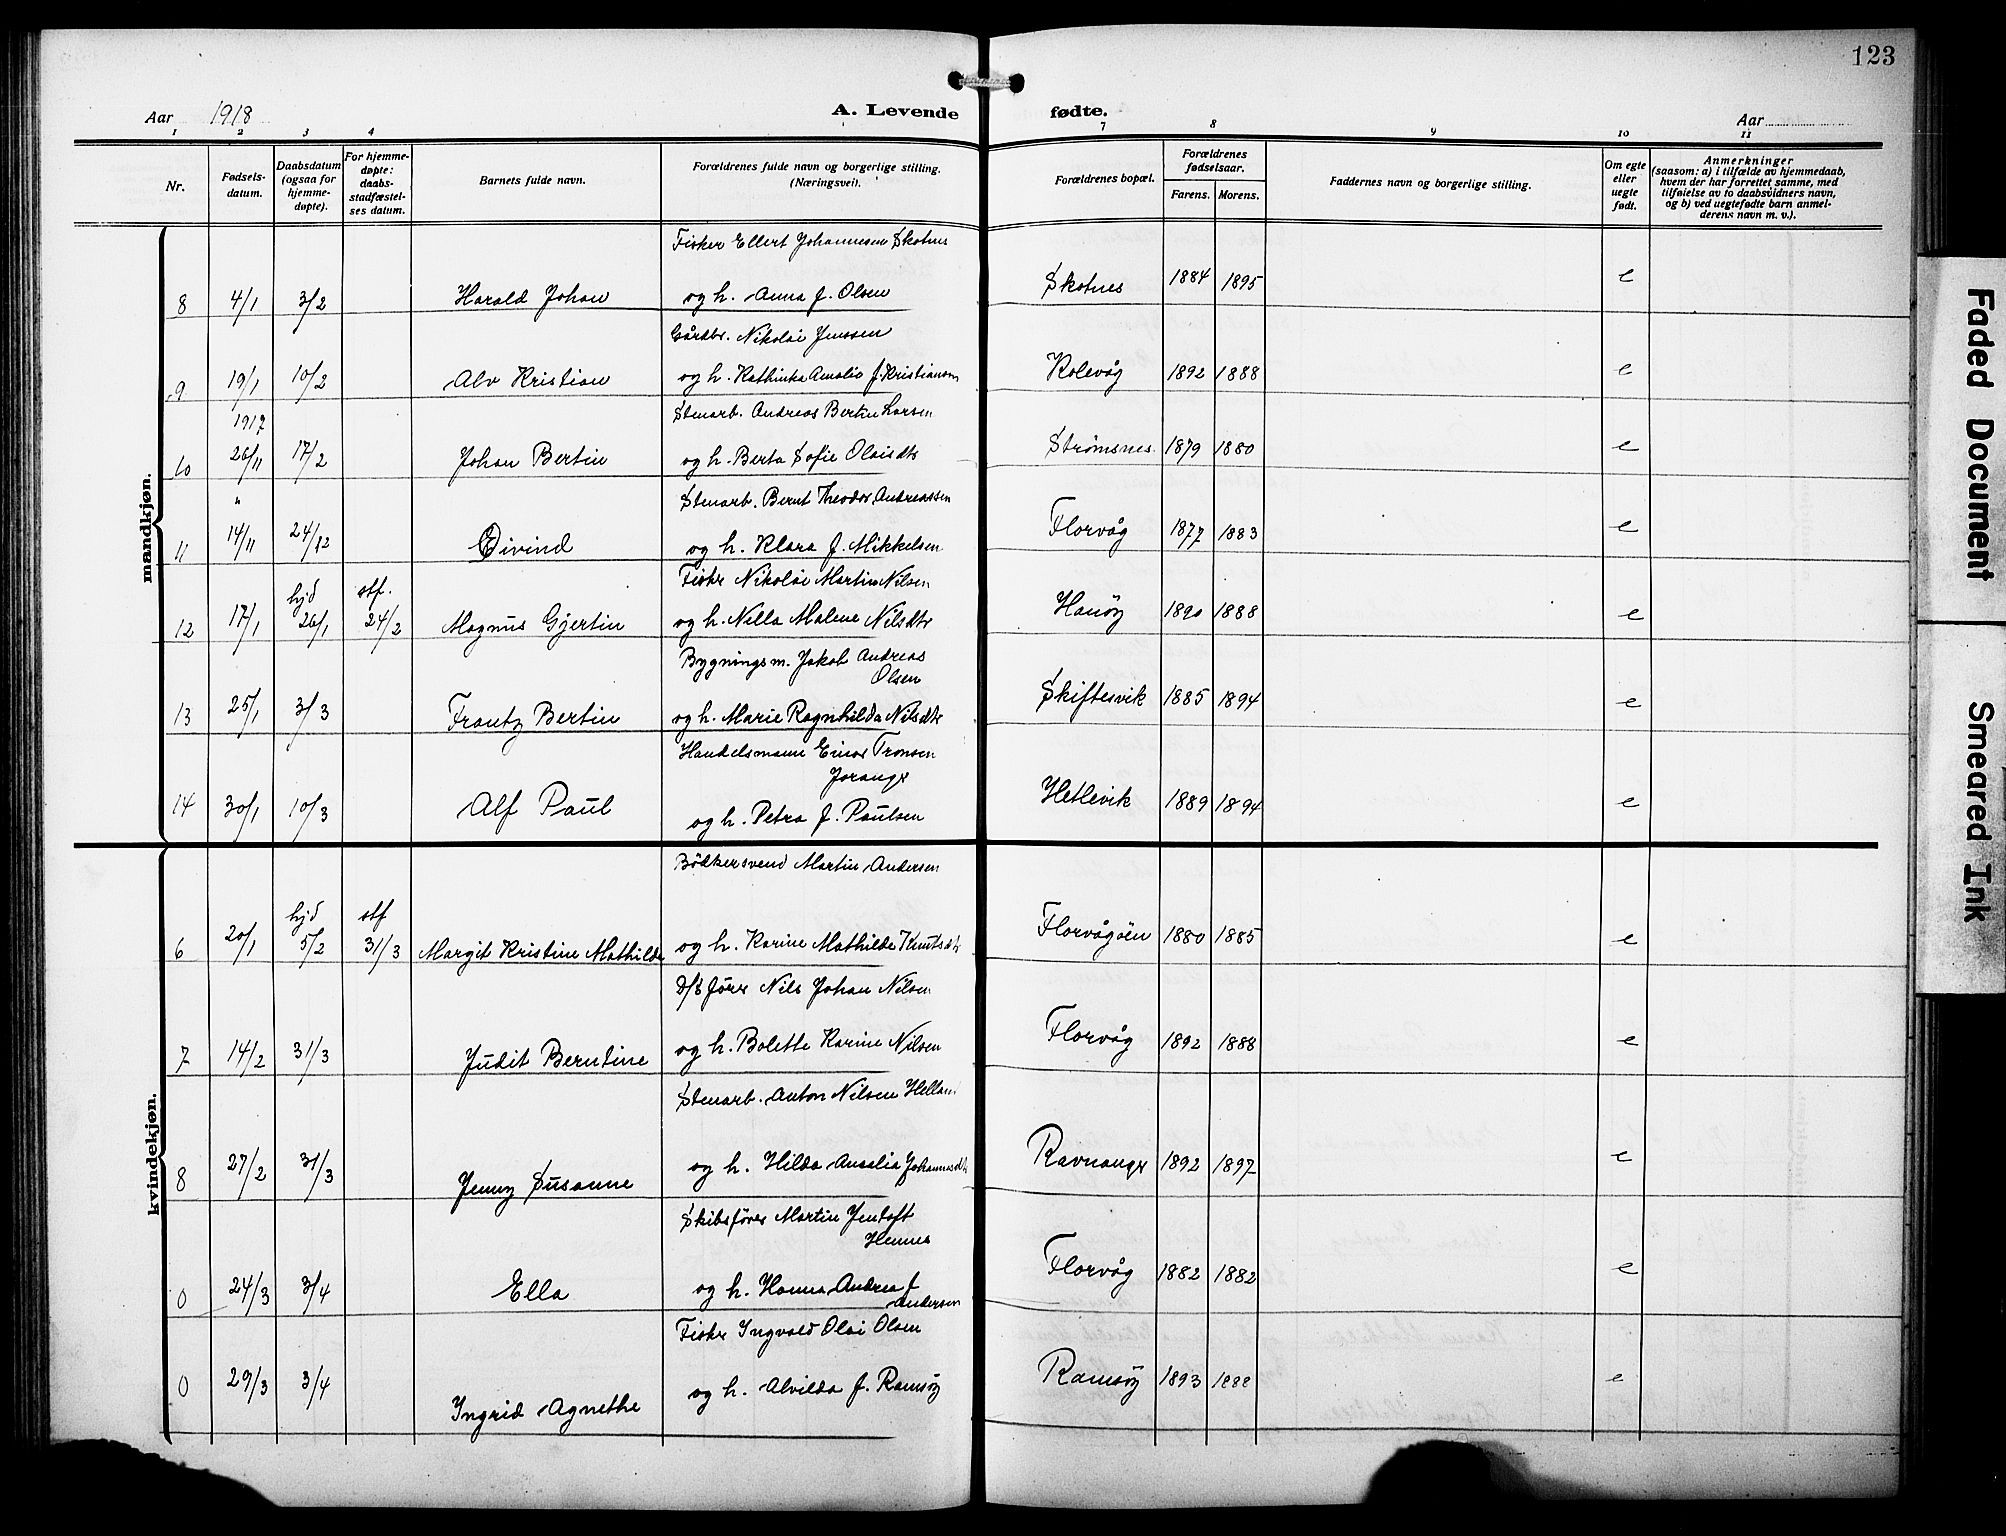 123
Aar 1918
A. Levende fødte.
Aar
1 2 3 4 7 8 9 10 11
Nr.
Fødsels-
datum.
Daabsdatum
(ogsaa for
hjemme-
døpte).
For hjemme-
døpte:
daabs-
stadfæstel-
ses datum.
Barnets fulde navn.
Forældrenes fulde navn og borgerlige stilling.
(Næringsvei).
Forældrenes bopæl.
Forældrenes
fødselsaar.
Farens. Morens.
Faddernes navn og borgerlige stilling.
Om egte
eller
uegte
født.
Anmerkninger
(saasom: a) i tilfælde av hjemmedaab,
hvem der har forrettet samme, med
tilføielse av to daabsvidners navn,
og b) ved uegtefødte barn anmel-
derens navn m. v.).
mandkjøn.
Fisker Ellert Johannesen Skotnes
8 4/1 3/2 Harald Johan og h. Anna f. Olsen Skotnes 1884 1895 e
Gårdbr. Nikolai Jenssen
9 19/1 10/2 Alv Kristian og h. Kathinka Amalia f. Kristiansen Rolevåg 1892 1888 e
1917 Stenarb. Andreas Bertin Larsen
10 26/11 17/2 Johan Bertin og h. Berta Sofie Olaisdtr Strømsnes 1879 1880 e
" Stenarb. Bernt Theodor Andreassen
11 14/11 24/12 Eivind og h. Klara f. Mikkelsen Florvåg 1877 1883 e
hjd stf. Fisker Nikolai Martin Nilsen
12 17/1 26/1 24/2 Magnus Gjertin og h. Nilla Malene Nilsdtr Hanöy 1890 1888 e
Bygningsm. Jakob Andreas
Olsen
13 25/1 3/3 Frantz Bertin og h. Marie Ragnhilda Nilsdtr Skiftesvik 1885 1894 e
Handelsmann Einar Tronsen
Joranger
14 30/1 10/3 Alf Paul og h. Petra f. Paulsen Hetlevik 1889 1894 e
kvindekjøn.
Bödkersvend Martin Andersen
hjd stf
6 20/1 5/2 31/3 Margit Kristine Mathilde og h. Karine Mathilde Knutsdtr Florvågöen 1880 1885 e
D/S förer Nils Johan Nilsen
7 14/2 31/3 Judit Berntine og h. Bolette Karine Nilsen Florvåg 1892 1888 e
Stenarb. Anton Nilsen Helland
8 27/2 31/3 Jenny Susanne og h. Hilda Amalia Johannesdtr Ravnanger 1892 1897 e
Skibsförer Martin Jentoft
Hennes
0 24/3 3/4 Ella og h. Hanna Andrea f
Andersen Florvåg 1882 1882 e
Fisker Ingvald Olai Olsen
0 29/3 3/4 Ingrid Agnethe og h. Alvilda f. Ramsöy Ramsöy 1893 1888 e
Faded Document
Smeared Ink